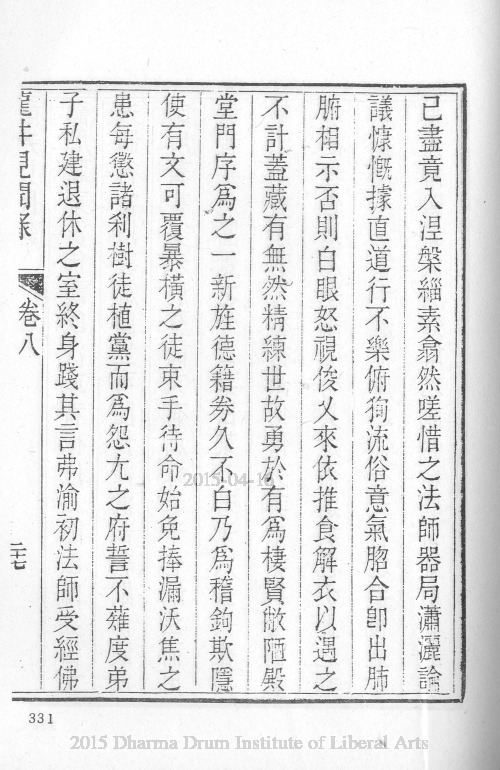 已盡竟入涅槃緇素翕然嗟惜之法師器局瀟灑論
議慷慨據直道行不樂俯狥流俗意氣脗合卽出肺
腑相示否則白眼怒視俊乂來依推食解衣以遇之
不計蓋藏有無然精練世故勇於有爲棲賢敝陋殿
堂門序爲之一新旌德籍劵久不白乃爲稽鉤欺隱
使有文可覆暴橫之徒束手待命始免捧漏沃焦之
患每懲諸利樹徒植黨而爲怨尤之府誓不薙度弟
子私建退休之室終身踐其言弗渝初法師受經佛
龍井見聞錄
卷八
二七
331
2015-04-16
2015 Dharma Drum Institute of Liberal Arts